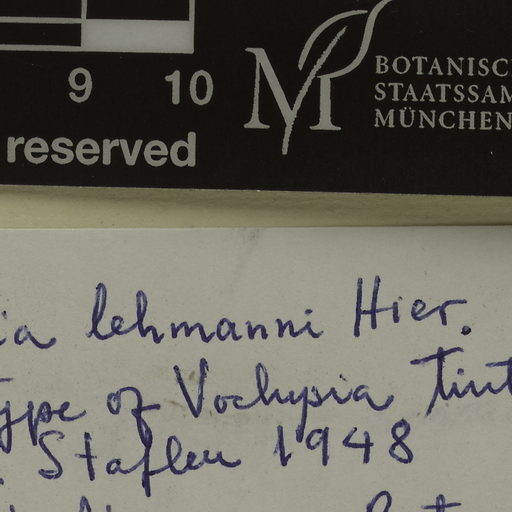 9 10
reserved
M
BOTANISC
STAATSSAM
MÜNCHEN
ia lehmanni Hier.
ype of Vochysia tint
Stafleu 1948